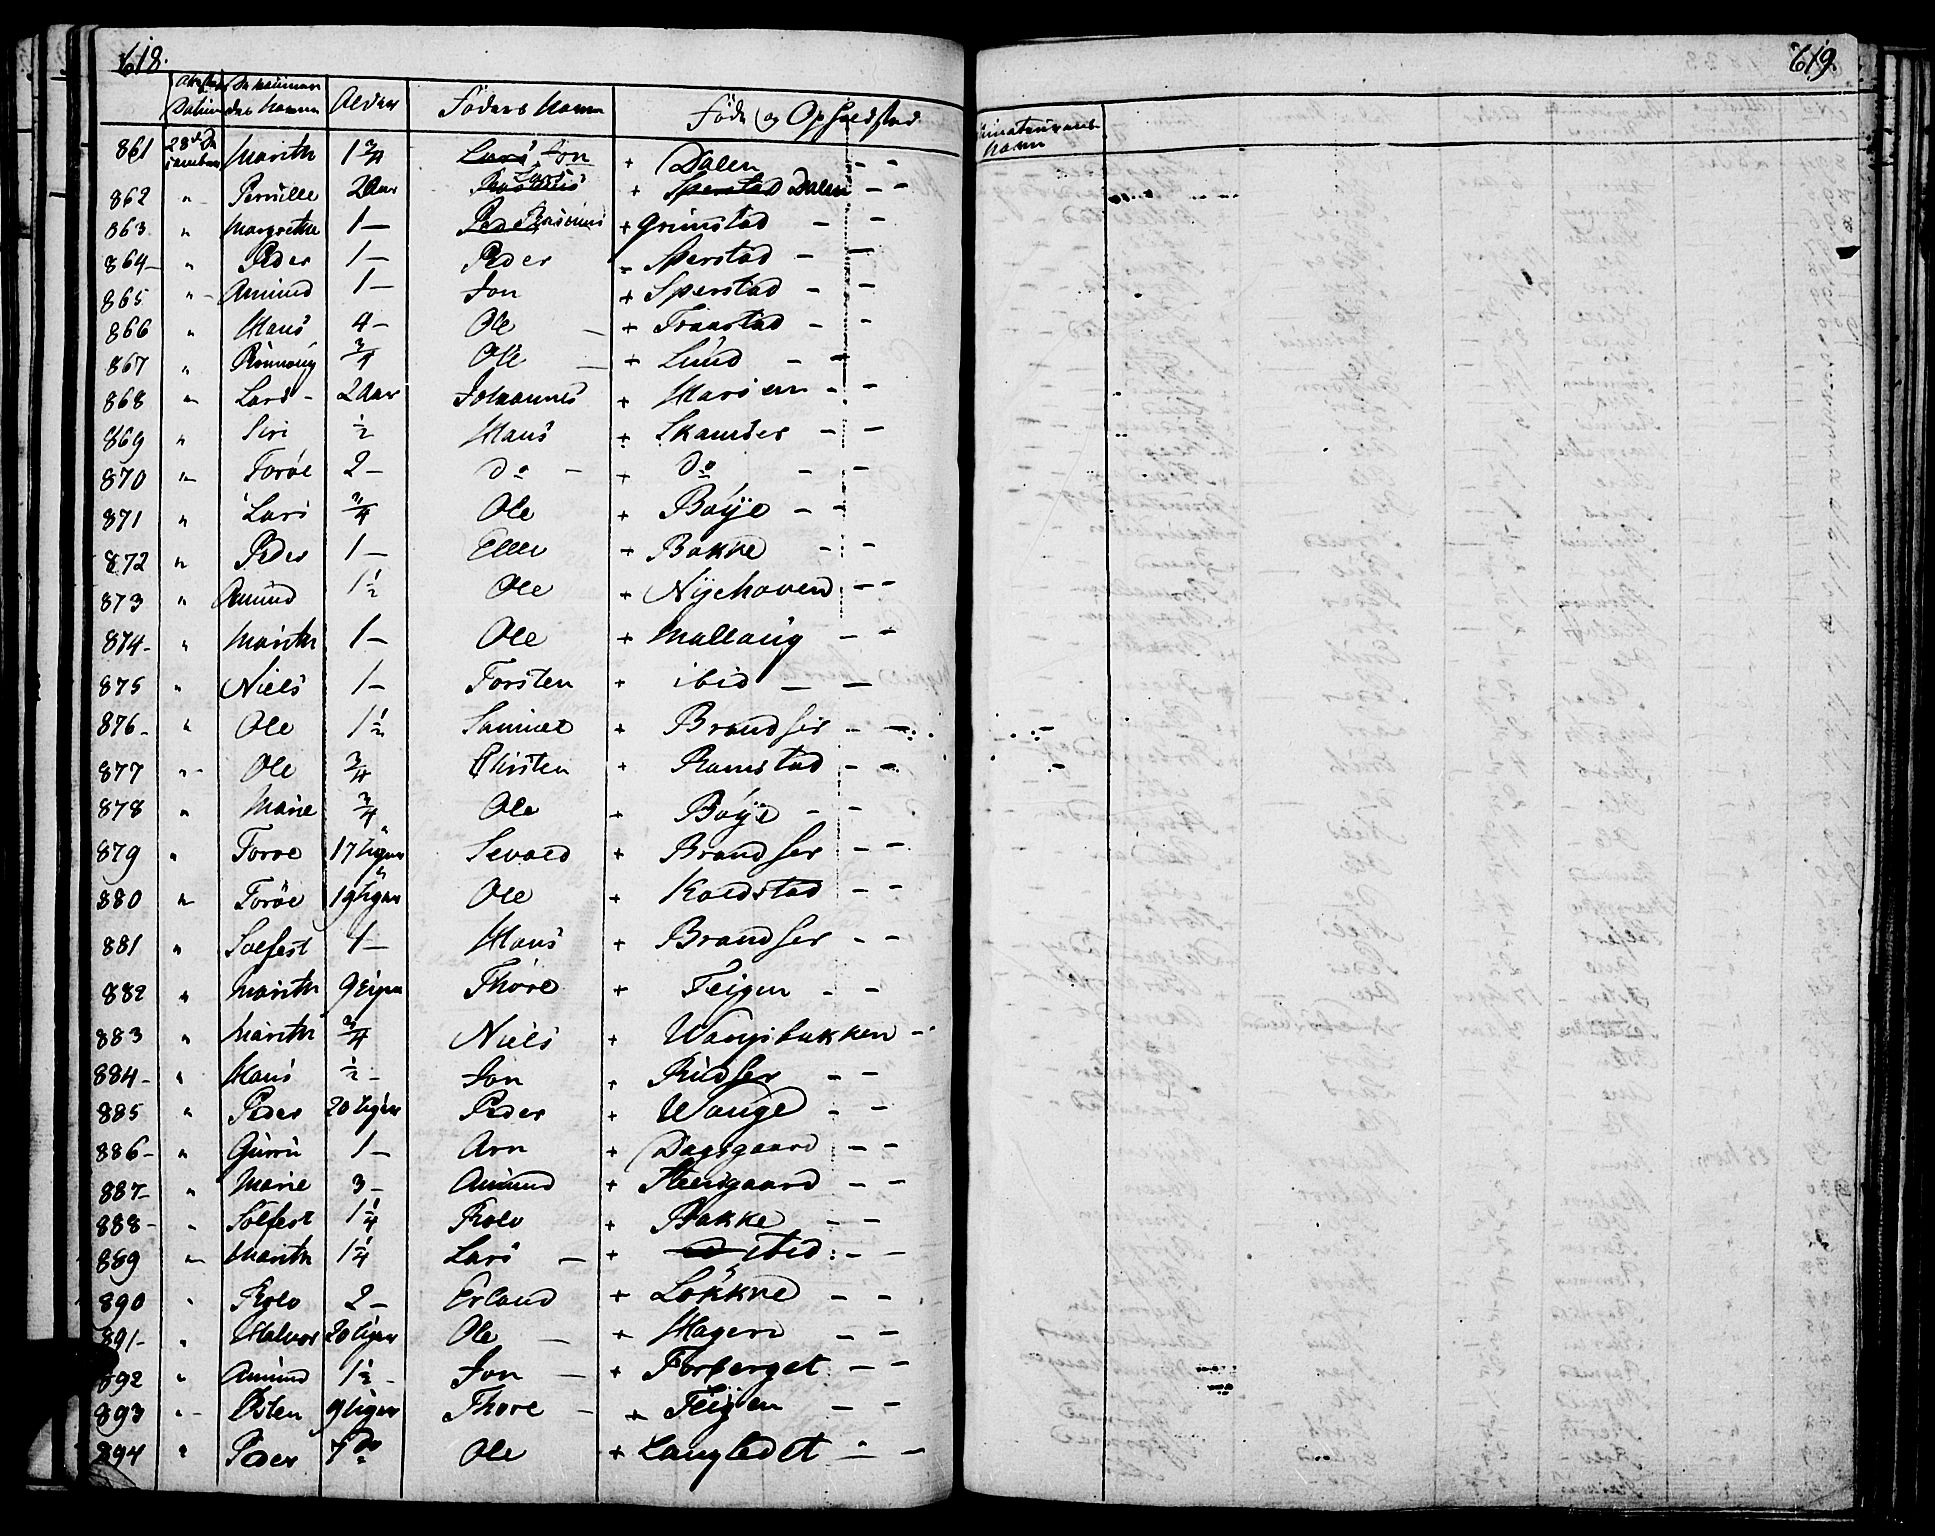 618.
Datum
Alder
Faders Navn
Føde og Opholdstad
861 28de Marith 1 3/4 Lars Jon + Dalen - -
862 " Pernille 2 Aar Rasmus Lars + Sperstad Dalen - -
863 " Margrethe 1 - Peder Rasmus + Grimstad - -
864 - " Peder 1 - Peder - Sperstad - -
865 " Amund 1 - Jon + Sperstad - -
866 " Hans 4 - Ole - + Fraastad - -
867 " Rønnoug 3/4 Ole - + Lund - -
868 " Lars - 2 Aar Johannes + - -
869 " Siri 1/2 Hans + Skamser - -
870 " Torøe 2 - do - + do - -
871 " Lars 3/4 Ole + Bøye - -
872 " Peder 1 - Ellev + Bakke - -
873 " Amund 1 1/2 Ole + Nyehaven - -
874 - " Marith 1 - Ole + Mallaug - -
875 " Niels 1 - Torsten + ibid - -
876 - " Ole 1 1/2 Samuel + Brandser - -
877 " Ole 3/4 Christen + Ramstad - -
878 " Marie 3/4 Ole + Bøye - -
879 " Toroe 17 Uger Sevald + Brandser - -
880 " Torøe 19 Uger Ole + Koldstad - -
881 " Solfest 1 - Hans + Brandser - -
882 " Marith 9 Uger Thore + Teigen - -
883 " Marith 3/4 Niels + Wangsbakken -
884 - " Hans 1/2 - Jon + Rudser - -
885 " Peder 20 Uger Peder + Wange - -
886 - " Guru 1 - Arn + Dagsgaard - -
887 - " Marie 3 - Amund + Steensgaard - -
888 - " Solfest 1 1/4 Rolv + Bakke - -
889 " Marith 1 1/4 Lars - + ibid: - -
890 " Rolv 2 - Erland + Løkkne - -
891 - " Halvor 20 Uger Ole - + Hagen - -
892 " Amund 1 1/2 - Jon - + Forberget - -
893 " Østen 9 Uger Thore - + Teigen - -
894 " Peder 7 do Ole + Langledet - -
619
Navn